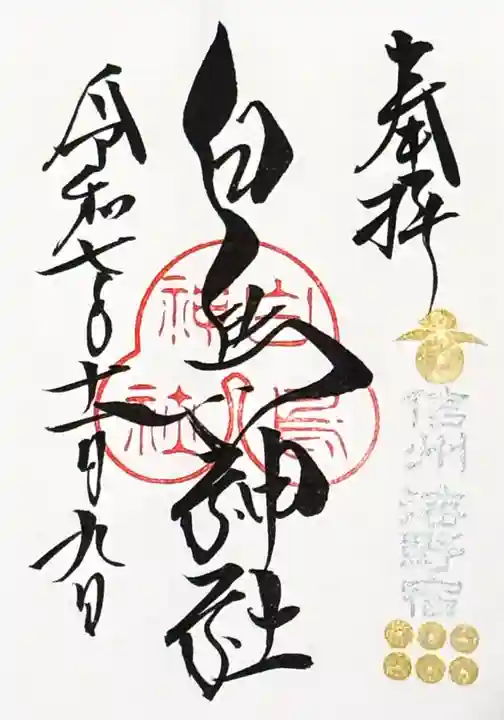 奉拝
信州 海野宿
白鳥神社
白鳥
神社
令和七年十一月九日